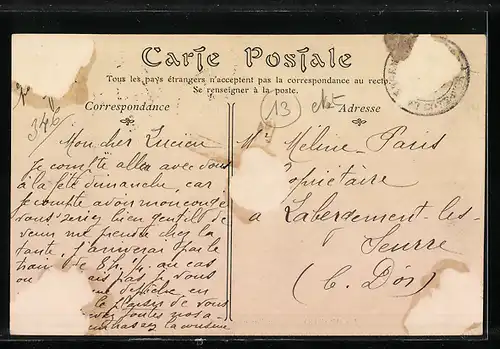 Carte Postale
Tous les pays étrangers n'acceptent pas la correspondance au recto.
Se renseigner à la poste.
Correspondance
Adresse
13
346
Mon cher Lucien
Je compte aller avec vous
à la fête dimanche, car
je compte avoir mon congé
vous seriez bien gentil de
venir me prendre chez la
tante, j'arriverai par le
train de 8h ¼. au cas
ou pas je vous
en
le plaisir de vous
toutes nos
la cousine
Mr Méline-Paris
opriétaire
à Labergement-les-
Seurre
(C. Dor)